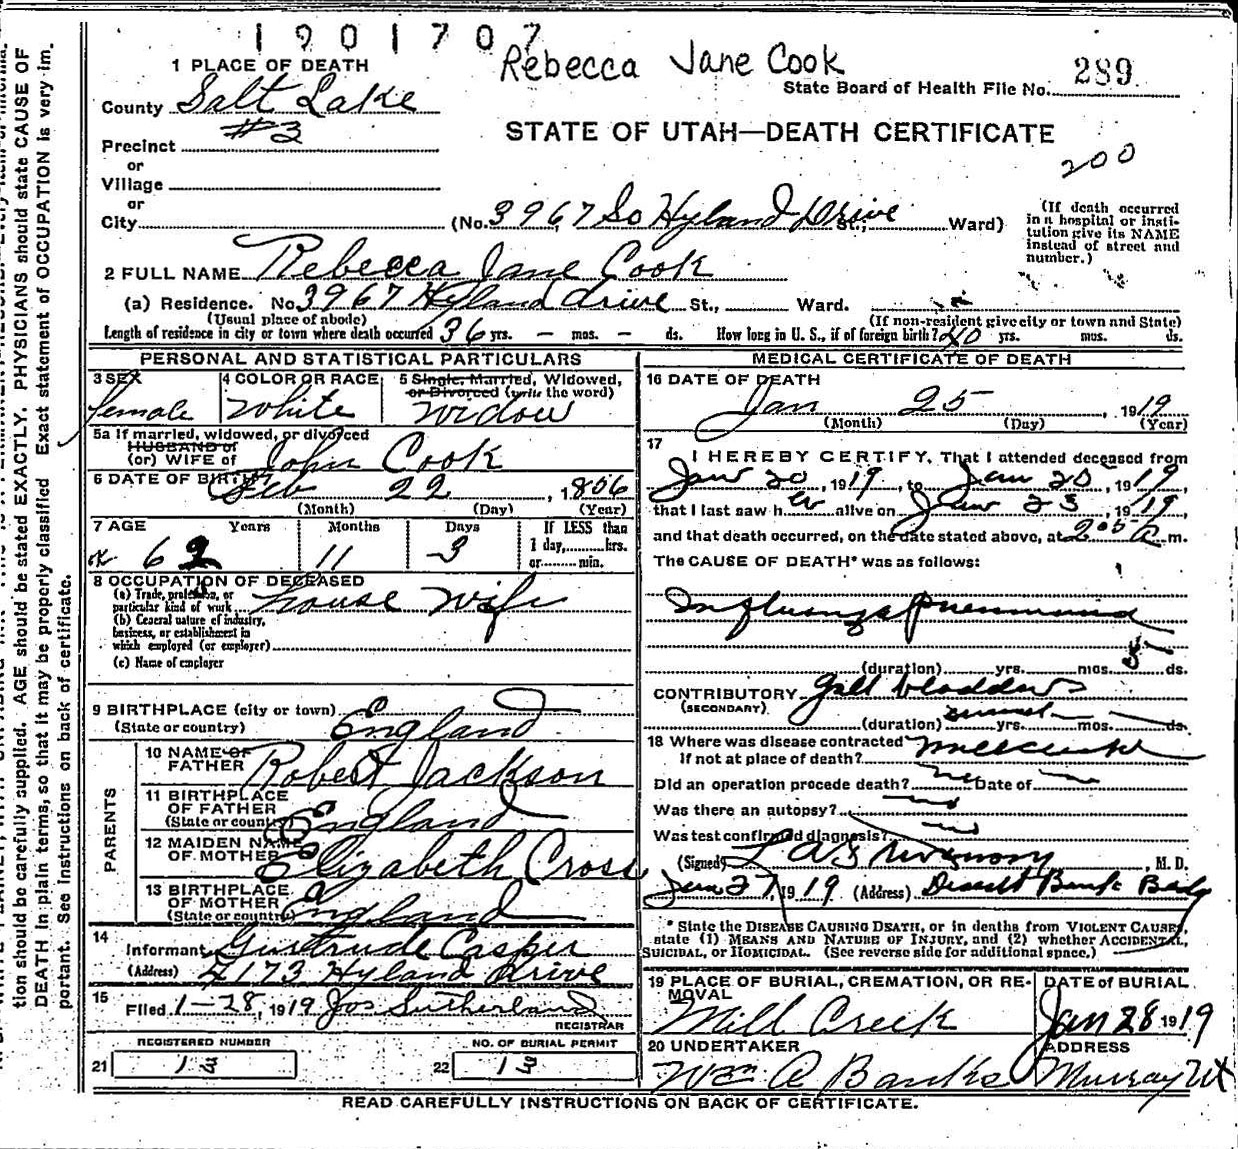 1901707
Rebecca Jane Cook
1 PLACE OF DEATH
State Board of Health File No. 289
County Salt Lake
#3
STATE OF UTAH—DEATH CERTIFICATE
200
Precinct
or
Village
or
City (No. 3967 So Hyland Drive St., Ward)
(If death occurred in a hospital or institution give its NAME instead of street and number.)
2 FULL NAME Rebecca Jane Cook
(a) Residence. No. 3967 Hyland drive St., Ward.
(Usual place of abode) (If non-resident give city or town and State)
Length of residence in city or town where death occurred 36 yrs. – mos. – ds. How long in U. S., if of foreign birth? 40 yrs. mos. ds.
PERSONAL AND STATISTICAL PARTICULARS
3 SEX 4 COLOR OR RACE 5 Single, Married, Widowed, or Divorced (write the word)
female White Widow
5a If married, widowed, or divorced
HUSBAND of
(or) WIFE of John Cook
6 DATE OF BIRTH Feb 22, 1856
(Month) (Day) (Year)
7 AGE Years Months Days If LESS than
1 day, hrs.
or min.
62 11 3
8 OCCUPATION OF DECEASED
(a) Trade, profession, or particular kind of work house wife
(b) General nature of industry, business, or establishment in which employed (or employer)
(c) Name of employer
9 BIRTHPLACE (city or town)
(State or country) England
PARENTS
10 NAME OF FATHER Robert Jackson
11 BIRTHPLACE OF FATHER
(State or country) England
12 MAIDEN NAME OF MOTHER Elizabeth Cross
13 BIRTHPLACE OF MOTHER
(State or country) England
14 Informant Gertrude Casper
(Address) 4173 Hyland Drive
15 Filed 1-28, 1919 Jos Sutherland
REGISTRAR
REGISTERED NUMBER NO. OF BURIAL PERMIT
21 13 22 13
MEDICAL CERTIFICATE OF DEATH
16 DATE OF DEATH
Jan 25, 1919
(Month) (Day) (Year)
17 I HEREBY CERTIFY, That I attended deceased from
Jan 20, 1919, to Jan 1919,
that I last saw her alive on Jan 23, 1919,
and that death occurred, on the date stated above, at 205 A m.
The CAUSE OF DEATH* was as follows:
Influenza pneumonia
(duration) yrs. mos. ds.
CONTRIBUTORY Gall bladder
(SECONDARY)
(duration) yrs. mos. ds.
18 Where was disease contracted
If not at place of death?
Did an operation precede death? no Date of
Was there an autopsy? no
Was test confirmed diagnosis? no
(Signed) M. D.
Jan 27, 1919 (Address) Deseret Bank Bldg
* State the DISEASE CAUSING DEATH, or in deaths from VIOLENT CAUSES, state (1) MEANS AND NATURE OF INJURY, and (2) whether ACCIDENTAL, SUICIDAL, or HOMICIDAL. (See reverse side for additional space.)
19 PLACE OF BURIAL, CREMATION, OR REMOVAL DATE of BURIAL
Mill Creek Jan 28 1919
20 UNDERTAKER ADDRESS
Wm A Banks Murray Ut
READ CAREFULLY INSTRUCTIONS ON BACK OF CERTIFICATE.
tion should be carefully supplied. AGE should be stated EXACTLY. PHYSICIANS should state CAUSE OF
DEATH in plain terms, so that it may be properly classified Exact statement of OCCUPATION is very im-
portant. See instructions on back of certificate.